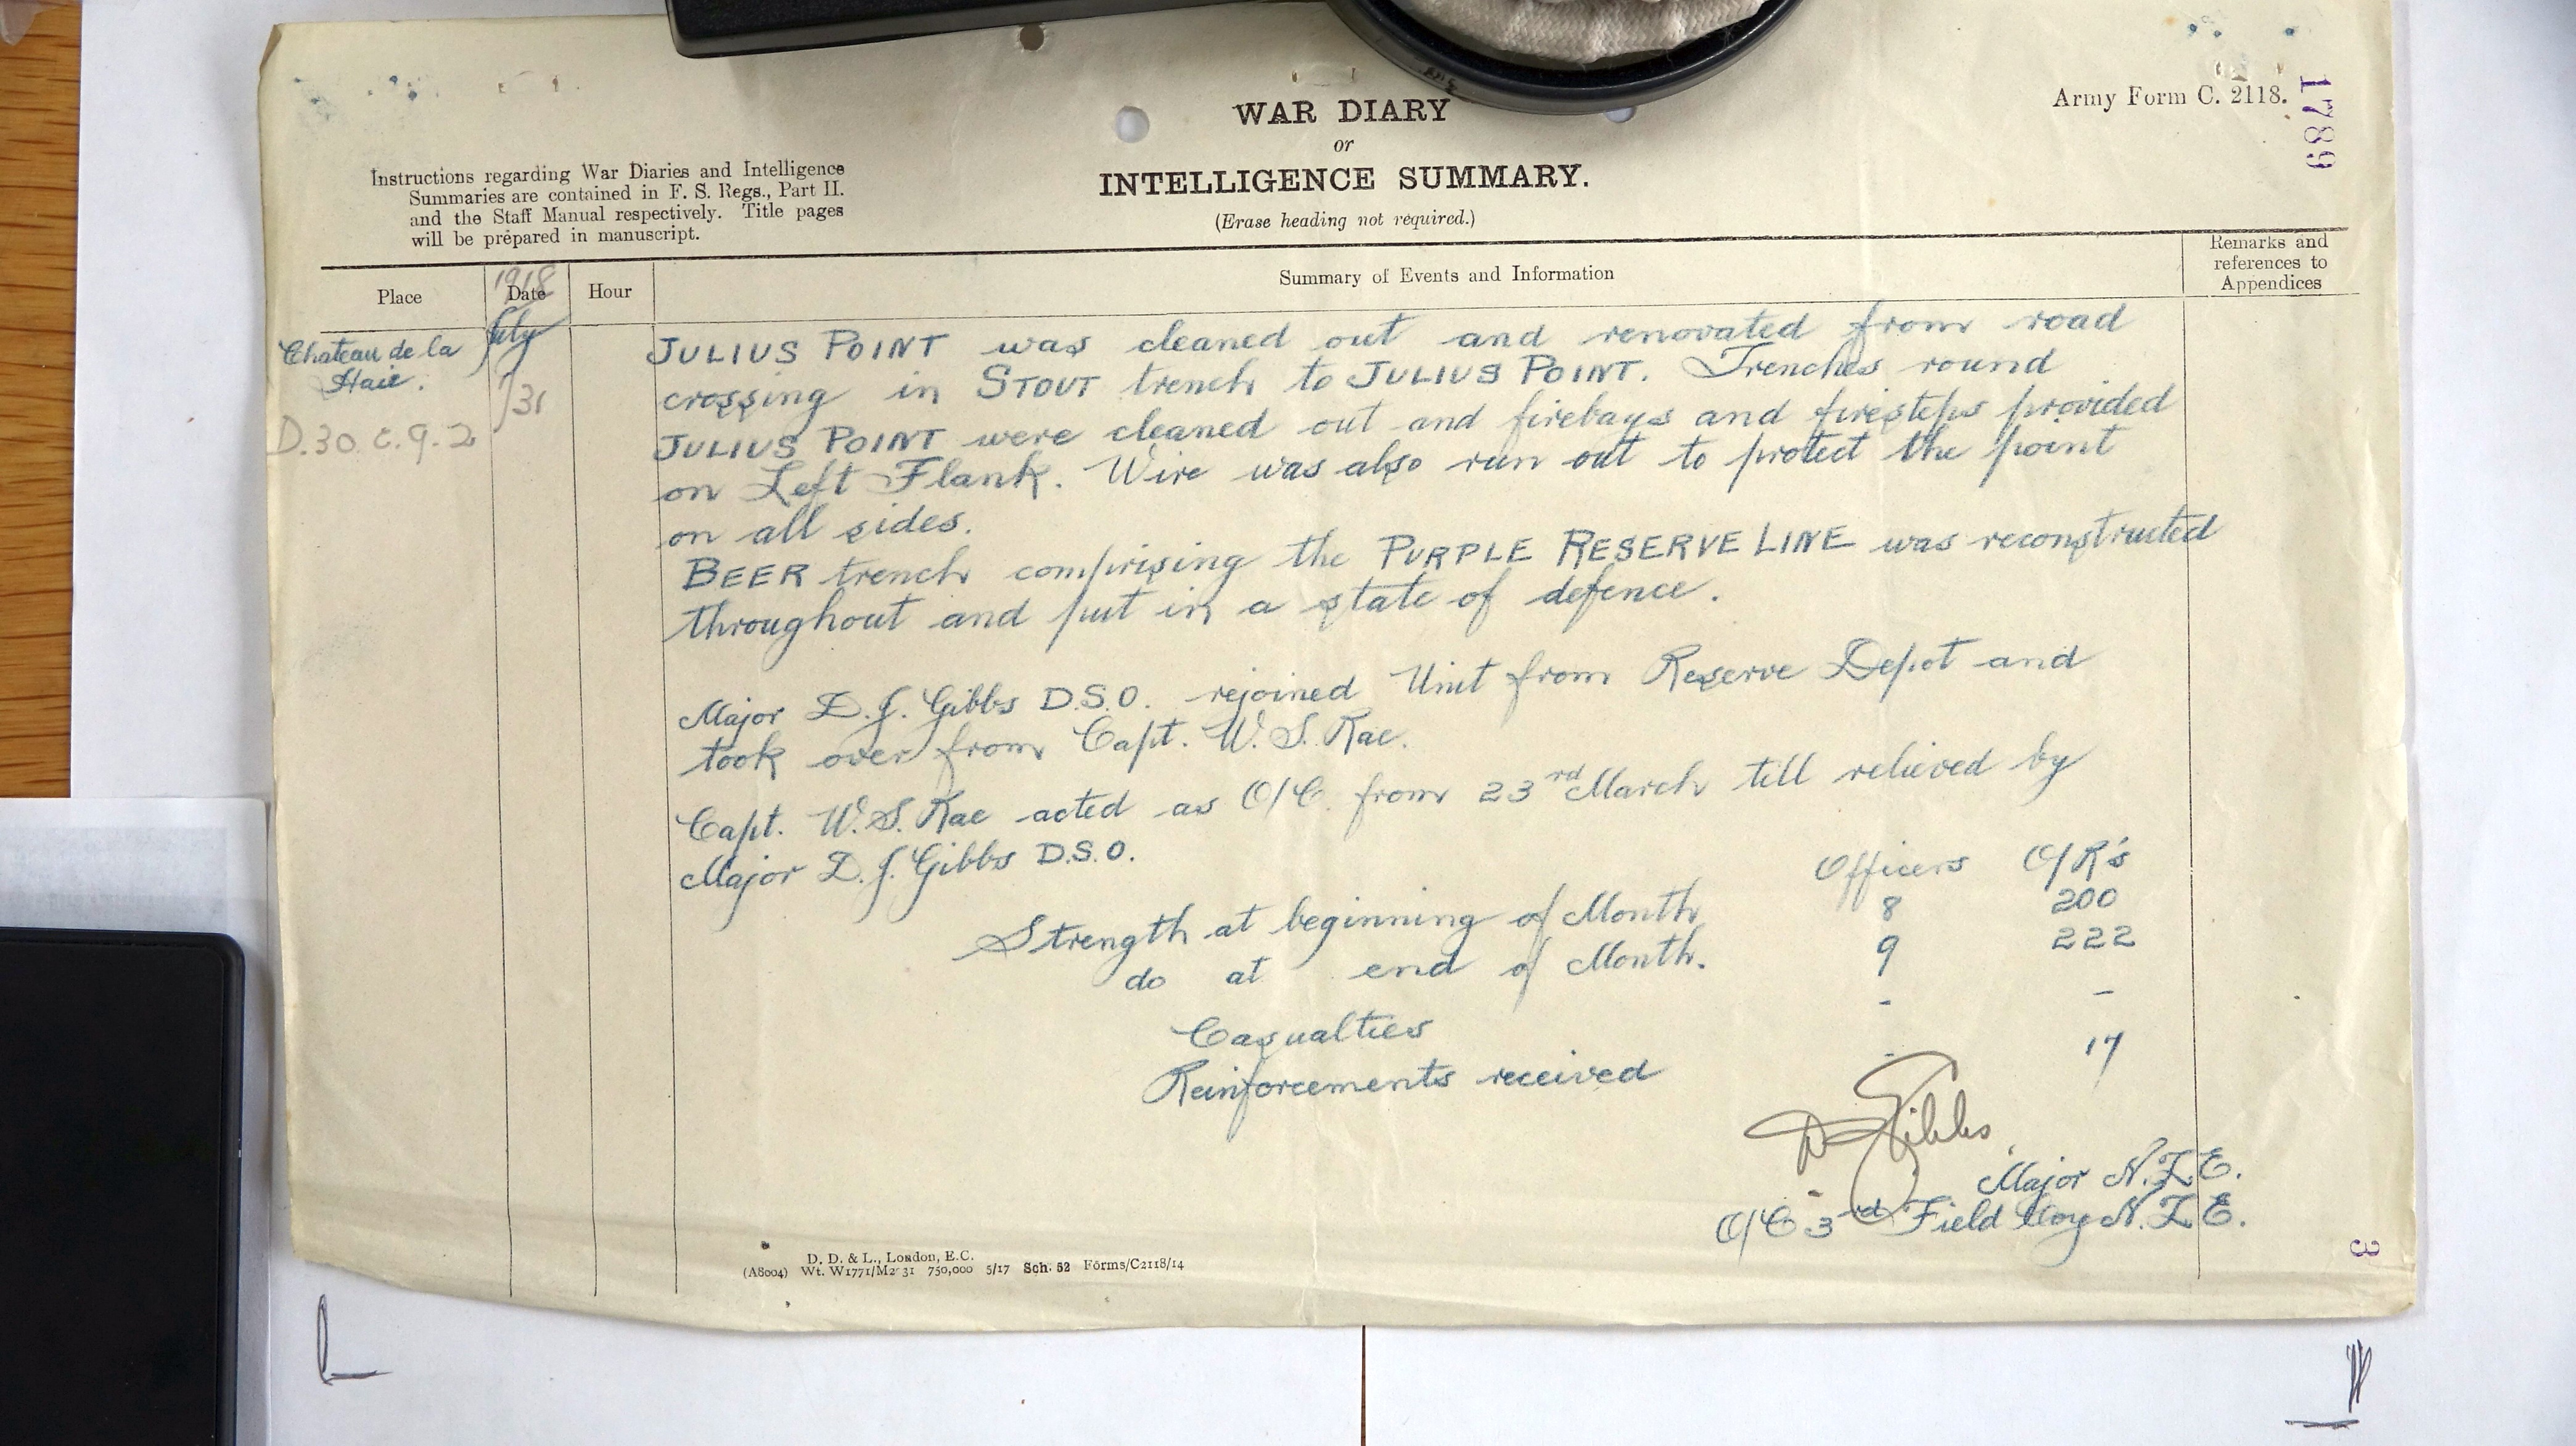 WAR DIARY
or
INTELLIGENCE SUMMARY.
(Erase heading not required.)
Army Form C. 2118.
1789
Instructions regarding War Diaries and Intelligence
Summaries are contained in F. S. Regs., Part II.
and the Staff Manual respectively. Title pages
will be prepared in manuscript.
Place
1918
Date
Hour
Summary of Events and Information
Remarks and
references to
Appendices
Chateau de la
Haie.
D.30.c.9.2
July
1/31
JULIUS POINT was cleaned out and renovated from road
crossing in STOUT trench to JULIUS POINT. Trenches round
JULIUS POINT were cleaned out and firebays and firesteps provided
on Left Flank. Wire was also run out to protect the point
on all sides.
BEER trench comprising the PURPLE RESERVE LINE was reconstructed
throughout and put in a state of defence.
Major D. J. Gibbs D.S.O. rejoined Unit from Reserve Depot and
took over from Capt. W. S. Rae.
Capt. W. S. Rae acted as O/C. from 23rd March till relieved by
Major D. J. Gibbs D.S.O.
Officers O/R's
Strength at beginning of Month 8 200
do at end of Month. 9 222
Casualties - -
Reinforcements received - 17
D J Gibbs
Major N.Z.E.
O/C 3rd Field Coy N.Z.E.
3
D. D. & L., London, E.C.
(A8004) Wt. W1771/M2 31 750,000 5/17 Sch. 52 Forms/C2118/14